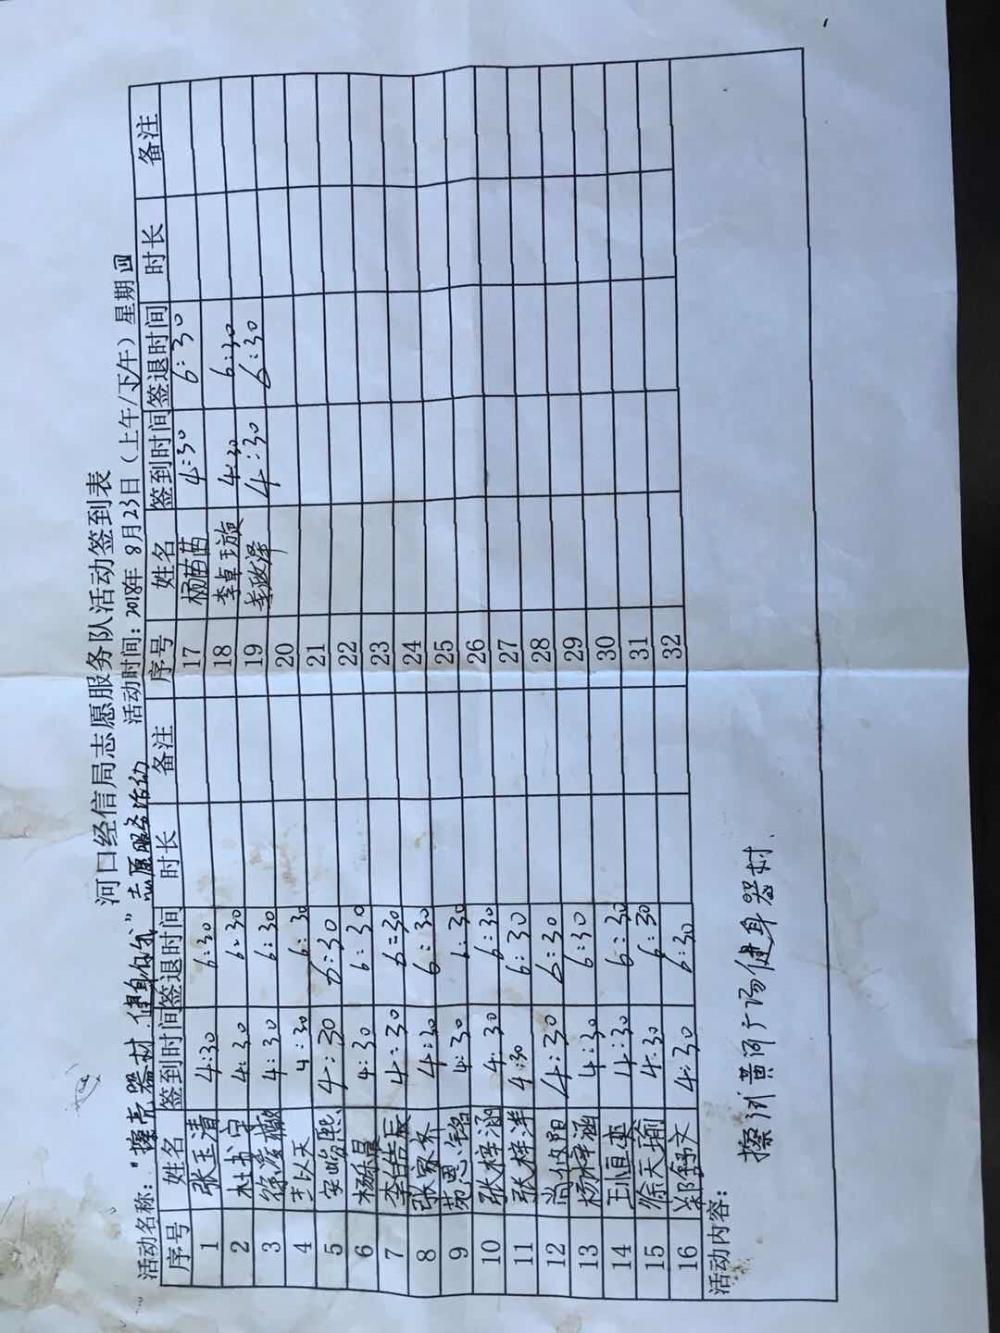 河口经信局志愿服务队活动签到表
活动名称：“擦亮器材 健身你我”志愿服务活动 活动时间：2018年8月23日（上午/下午）星期四
序号 姓名 签到时间 签退时间 时长 备注 序号 姓名 签到时间 签退时间 时长 备注
1 张玉清 4:30 6:30 17 杨苗苗 4:30 6:30
2 杜书宇 4:30 6:30 18 李卓璇 4:30 6:30
3 徐凌 4:30 6:30 19 4:30 6:30
4 王以文 4:30 6:30 20
5 安怡熙 4:30 6:30 21
6 杨乐晨 4:30 6:30 22
7 李浩辰 4:30 6:30 23
8 张家齐 4:30 6:30 24
9 苑思铭 4:30 6:30 25
10 张梓涵 4:30 6:30 26
11 张梓洋 4:30 6:30 27
12 尚欣阳 4:30 6:30 28
13 杨梓涵 4:30 6:30 29
14 王恒奕 4:30 6:30 30
15 徐天瑜 4:30 6:30 31
16 舒文 4:30 6:30 32
活动内容：
擦洗黄河广场健身器材